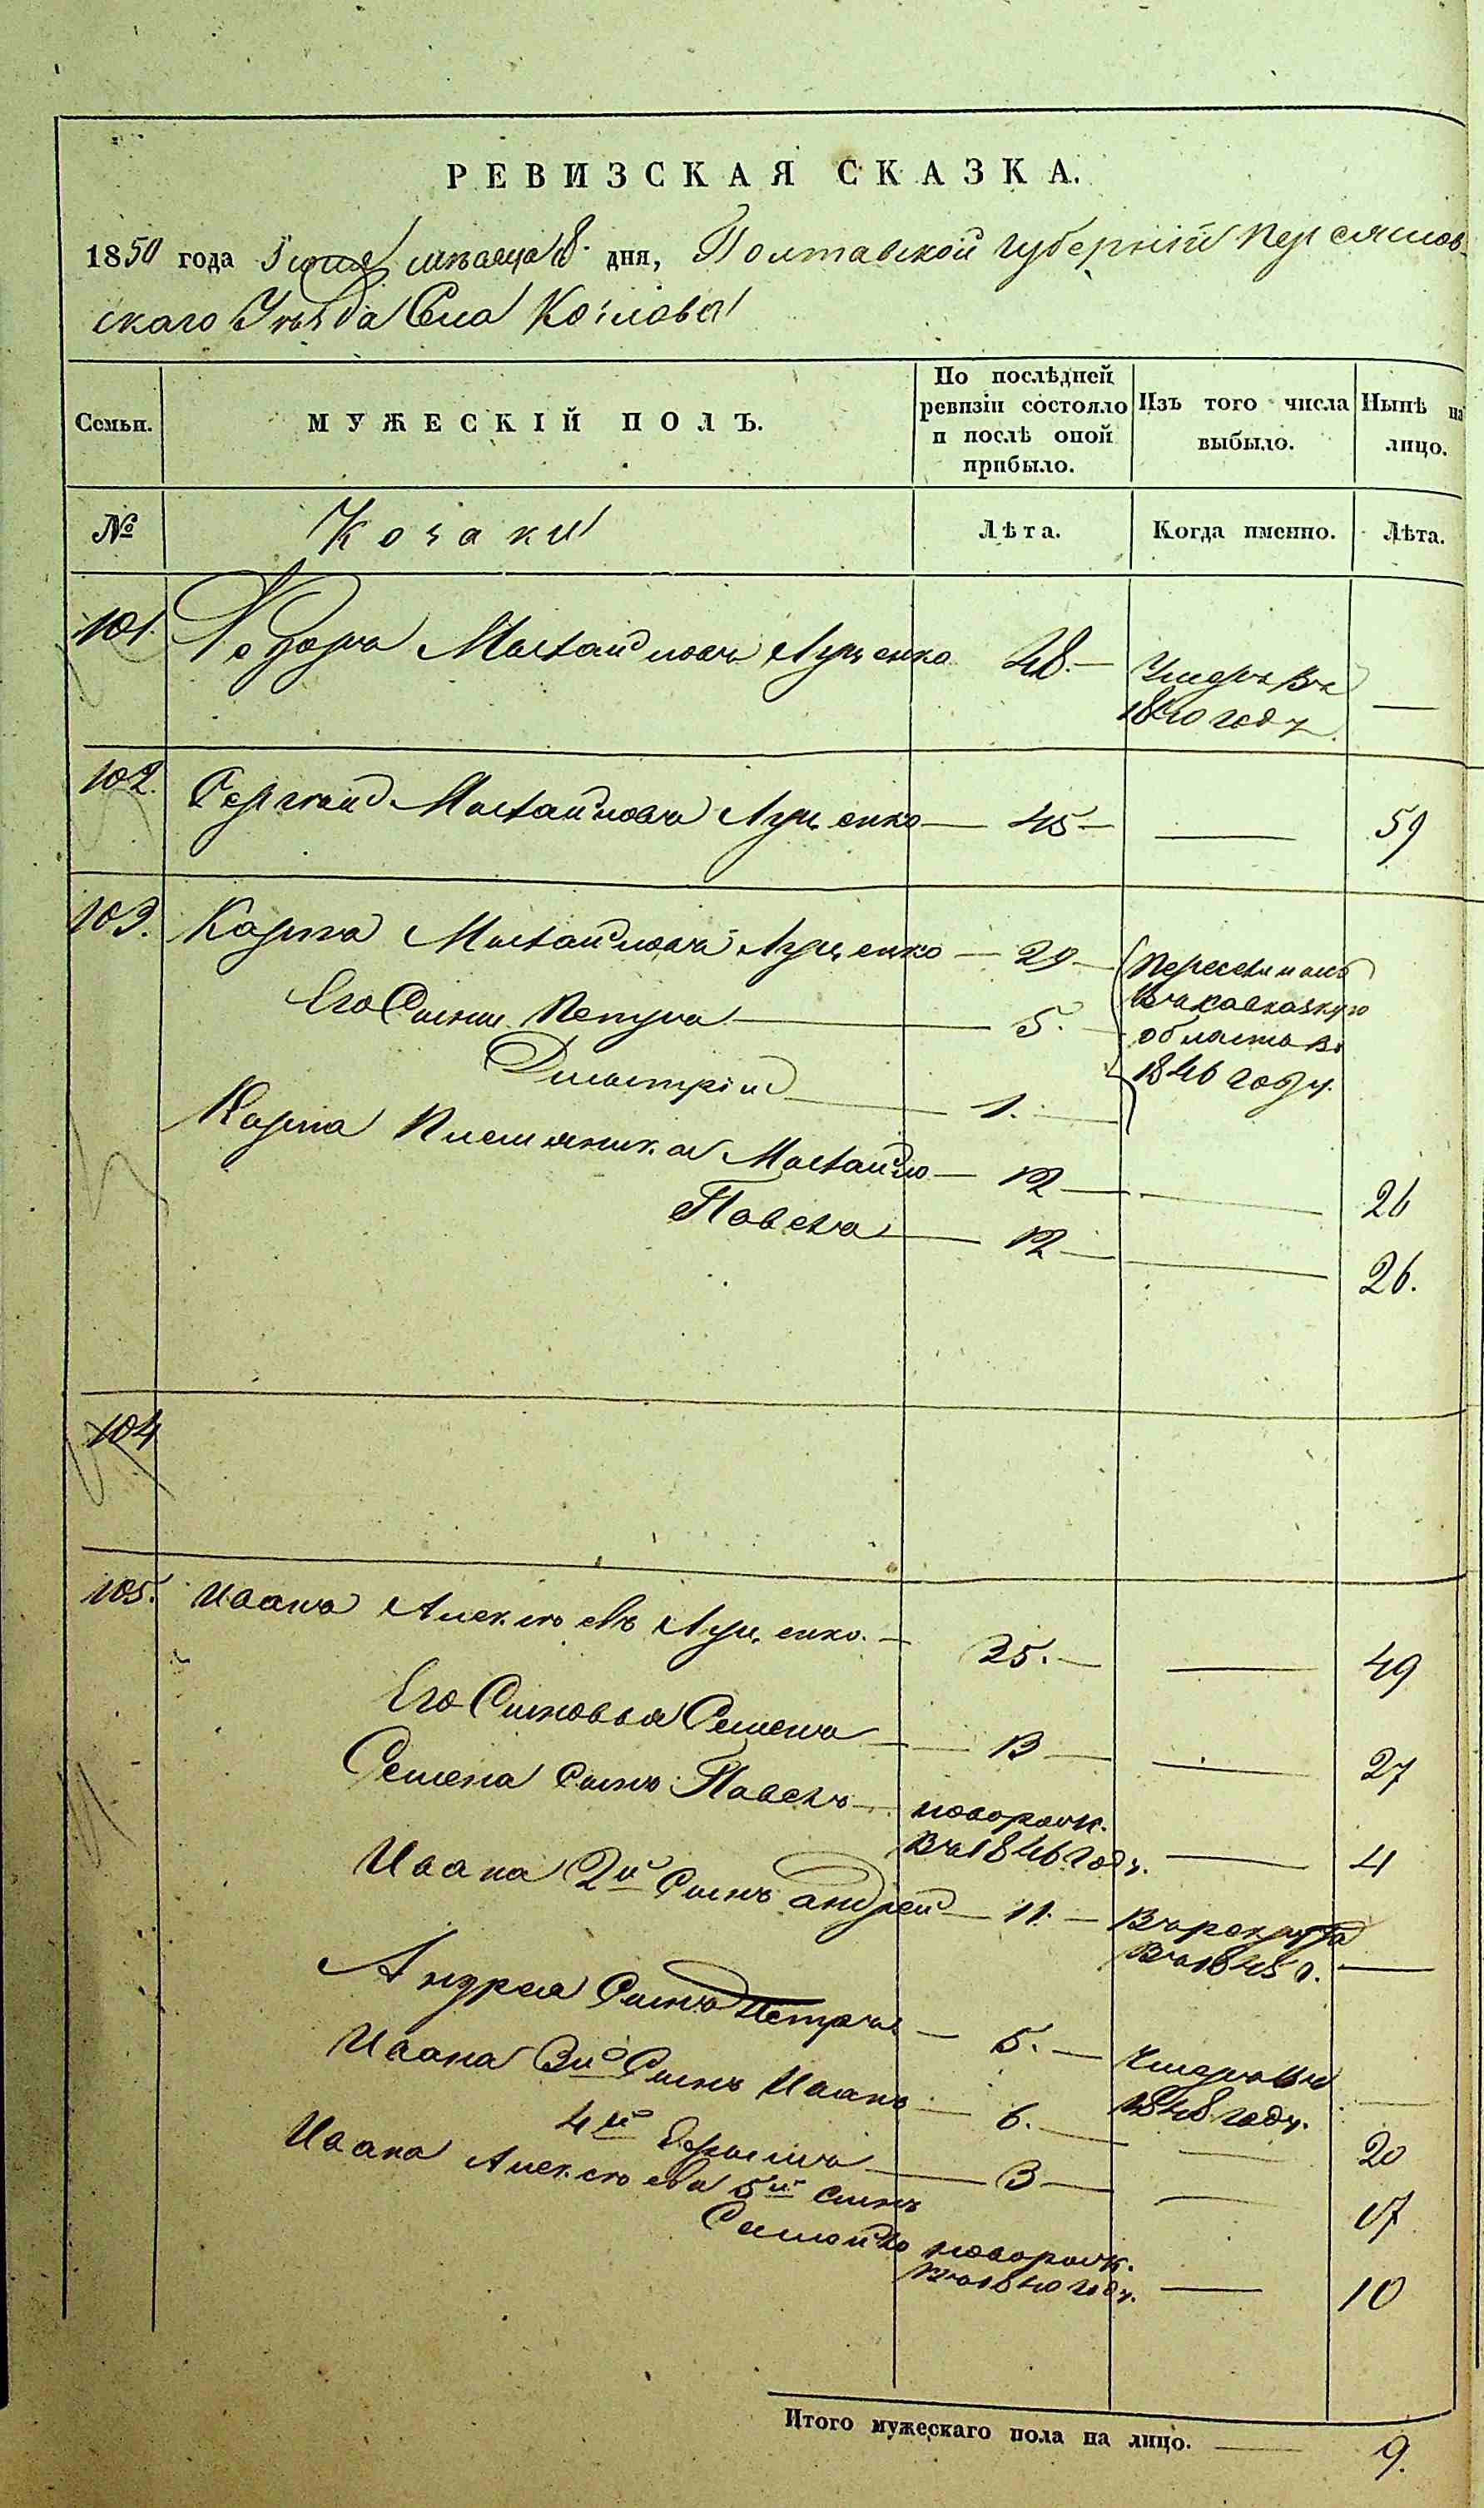 РЕВИЗСКАЯ СКАЗКА.
1850 года Iюня мѣсяца 8. дня, Полтавской губернiи Переяслов-
скаго Уѣзда Села Козлова
Семьи.
МУЖЕСКIЙ ПОЛЪ.
По послѣдней ревизiи состояло и послѣ оной прибыло.
Изъ того числа выбыло.
Нынѣ на лицо.
№
Козаки
Лѣта.
Когда именно.
Лѣта.
101. Ѳедоръ Михайловъ Луценко 48. — Умеръ въ
1840 году. —
102. Сергѣй Михайловъ Луценко — 45 — — 59
103. Карпъ Михайловъ Луценко — 29 — Переселился
въ Кавказкую
Его Сыны Петръ — 5. — область въ
Дмытрiй — 1. — 1846 году.
Карпа Племянники Михайло — 12 — — 26
Павелъ — 12 — — 26.
104
105. Иванъ Алексѣевъ Луценко. — 35. — — 49
Его Сыновья Семенъ — 13 — — 27
Семена сынъ Павелъ — новорожд.
въ 1846 году. — 4
Ивана 2й Сынъ андрей — 11. — Въ рекрута
въ 1845 г. —
Андрея Сынъ Петръ — 5. — Умеръ въ
1848 году. —
Ивана 3й Сынъ Иванъ — 6. — — 20
4й Ефимъ — 3 — — 17
Ивана Алексѣева 5й сынъ
Самойло новорожд.
въ 1840 году. — 10
Итого мужескаго пола на лицо. — 9.